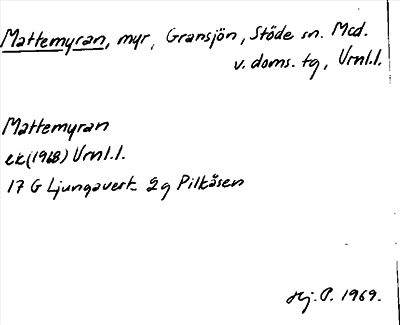 Mattemyran, myr, Gransjön, Stöde sn. Med.
v. doms. tg, Vrnl.l.
Mattemyran
ek(1968) Vrnl.l.
17 G Ljungaverk 2g Pilkåsen
Hj. P. 1969.